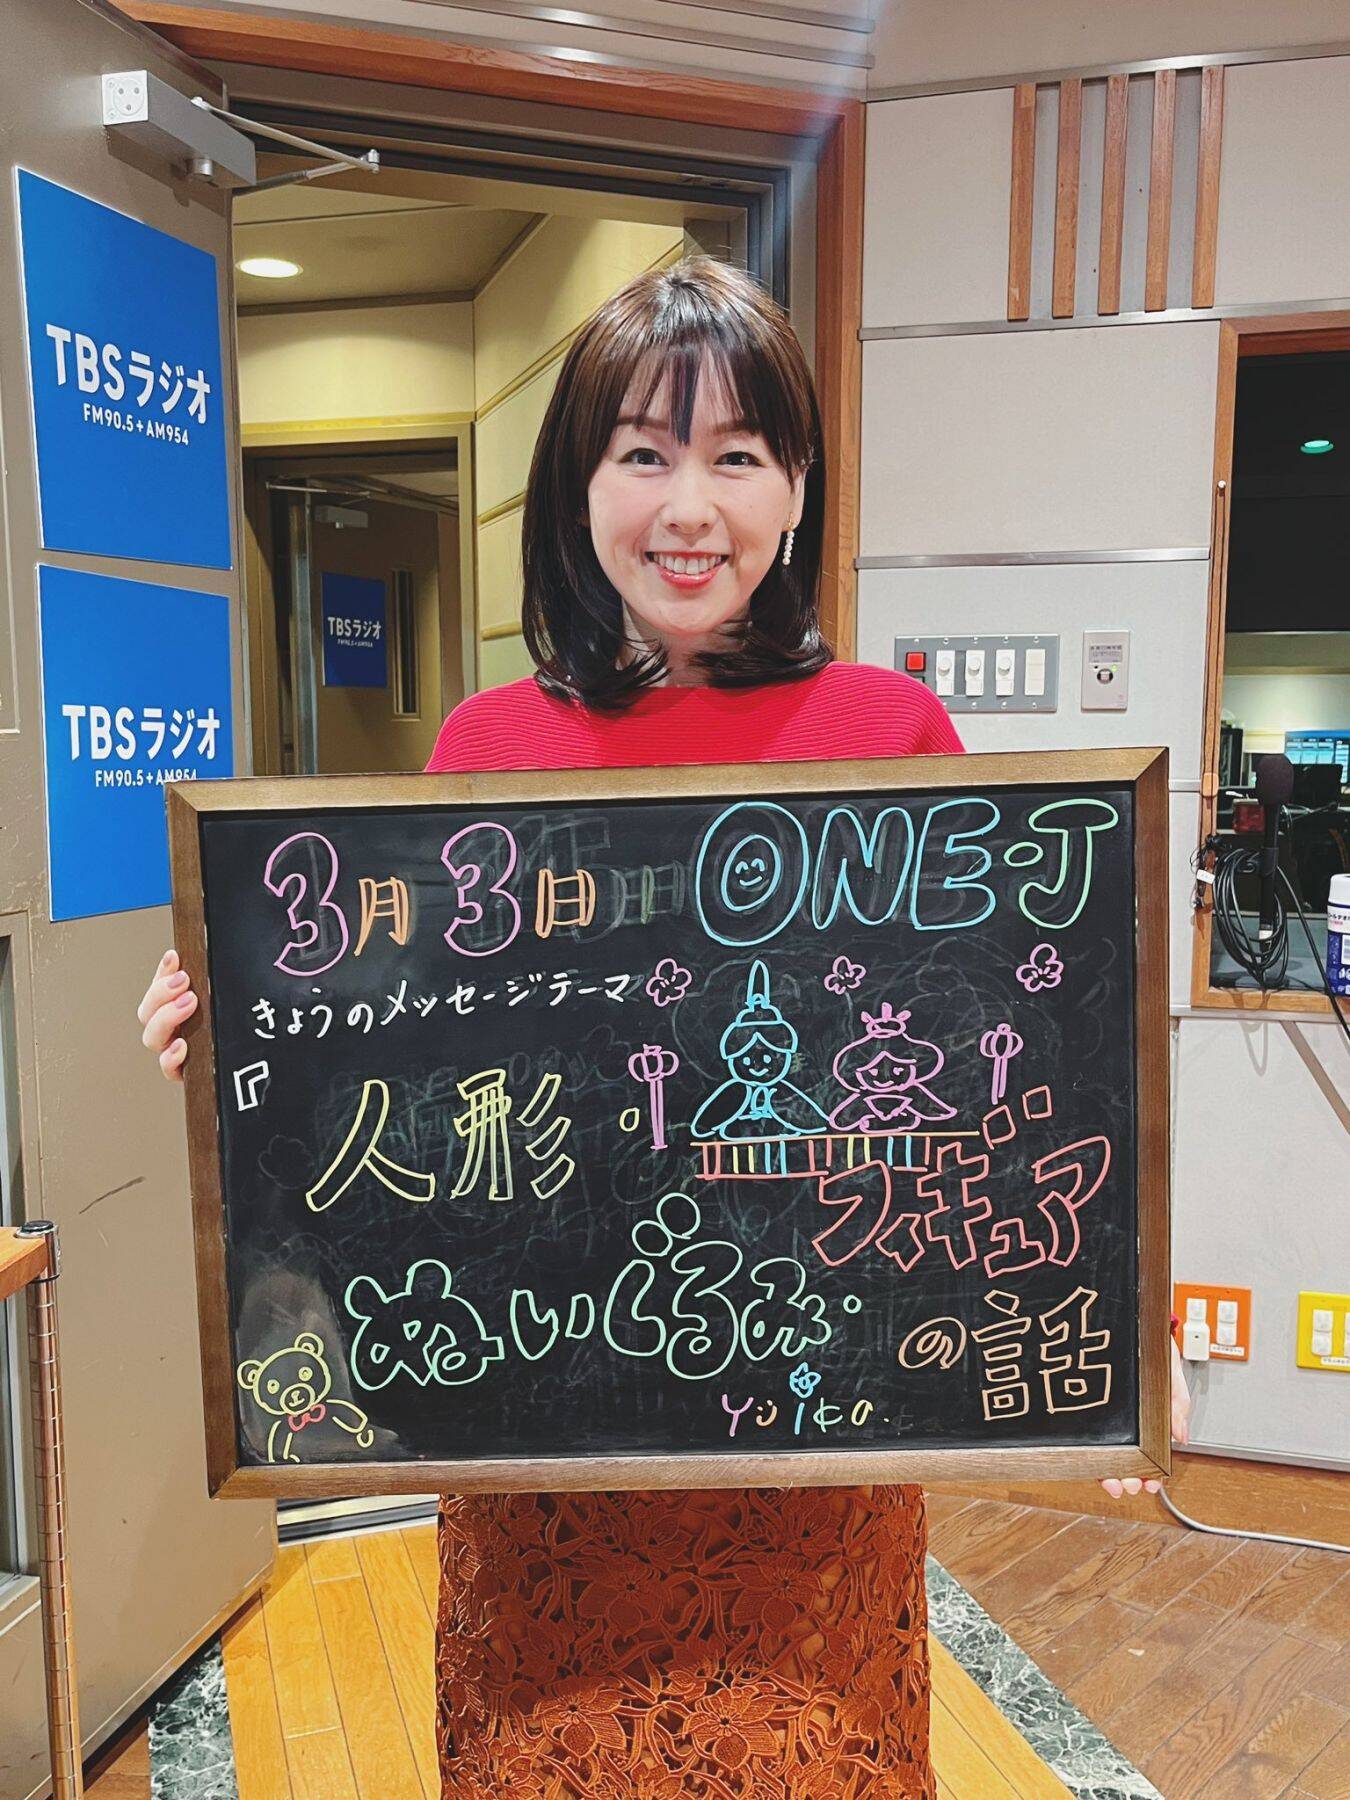 TBSラジオ
FM90.5+AM954
TBSラジオ
FM90.5+AM954
TBSラジオ
FM90.5+AM954
3月3日 ONE-J
きょうのメッセージテーマ
『人形・
フィギュア
ぬいぐるみ・
の話
Yuika.